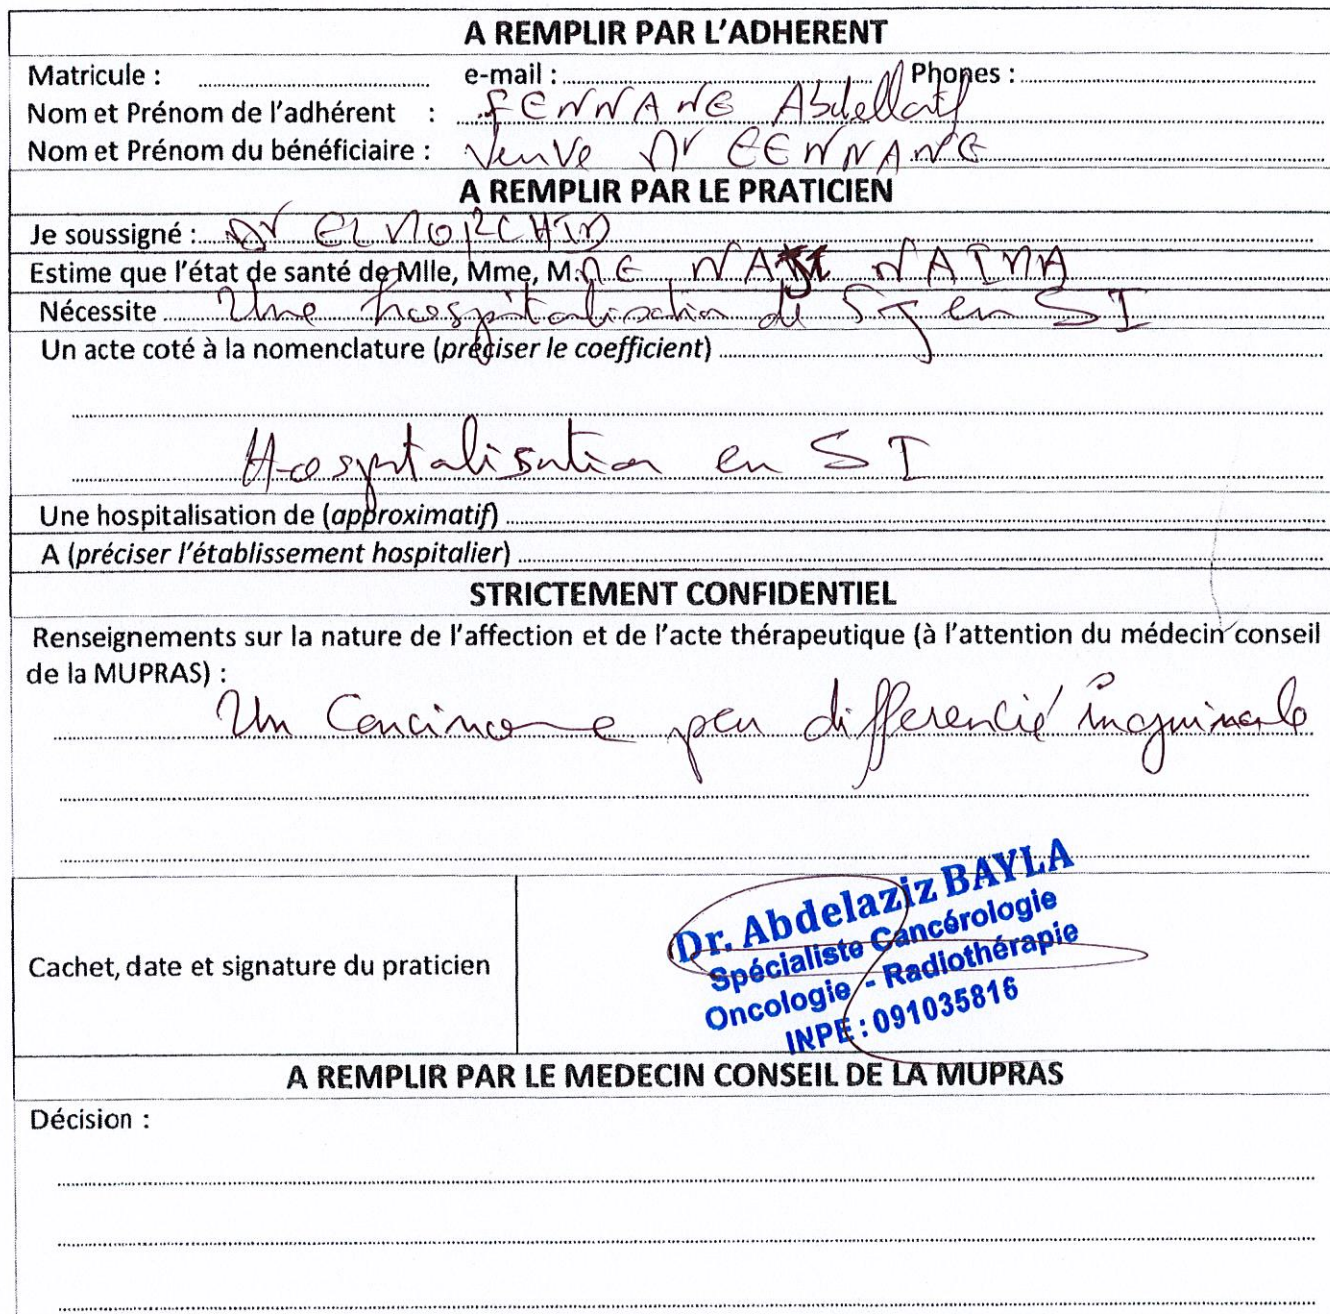 A REMPLIR PAR L'ADHERENT
Matricule : ........ e-mail : ........ Phones : ........
Nom et Prénom de l'adhérent : FENNANE Abdellatif
Nom et Prénom du bénéficiaire : Veuve Mr FENNANE
A REMPLIR PAR LE PRATICIEN
Je soussigné : Dr
Estime que l'état de santé de Mlle, Mme, M. NAIMA
Nécessite Une hospitalisation de 5J en SI
Un acte coté à la nomenclature (préciser le coefficient) ........
Hospitalisation en SI
Une hospitalisation de (approximatif) ........
A (préciser l'établissement hospitalier) ........
STRICTEMENT CONFIDENTIEL
Renseignements sur la nature de l'affection et de l'acte thérapeutique (à l'attention du médecin conseil
de la MUPRAS) :
Un Carcinome peu differencié inguinale
Dr. Abdelaziz BAYLA
Spécialiste Cancérologie
Oncologie - Radiothérapie
INPE : 091035816
Cachet, date et signature du praticien
A REMPLIR PAR LE MEDECIN CONSEIL DE LA MUPRAS
Décision :